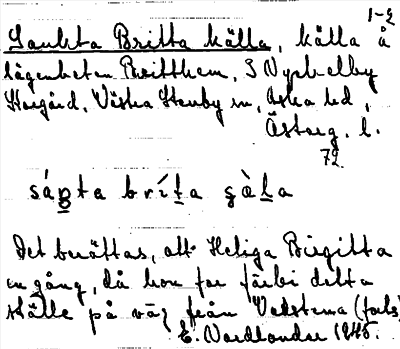 1-2
Sankta Britta källa, källa å
lägenheten Britthem, S Nyckelby
Storgård, Västra Stenby sn, Aska hd,
Österg. l.
72
sáṇta bríta ṣàla
Det berättas, att Heliga Birgitta
en gång, då hon for förbi detta
ställe på väg från Vadstena (forts)
E. Nordlander 1945.